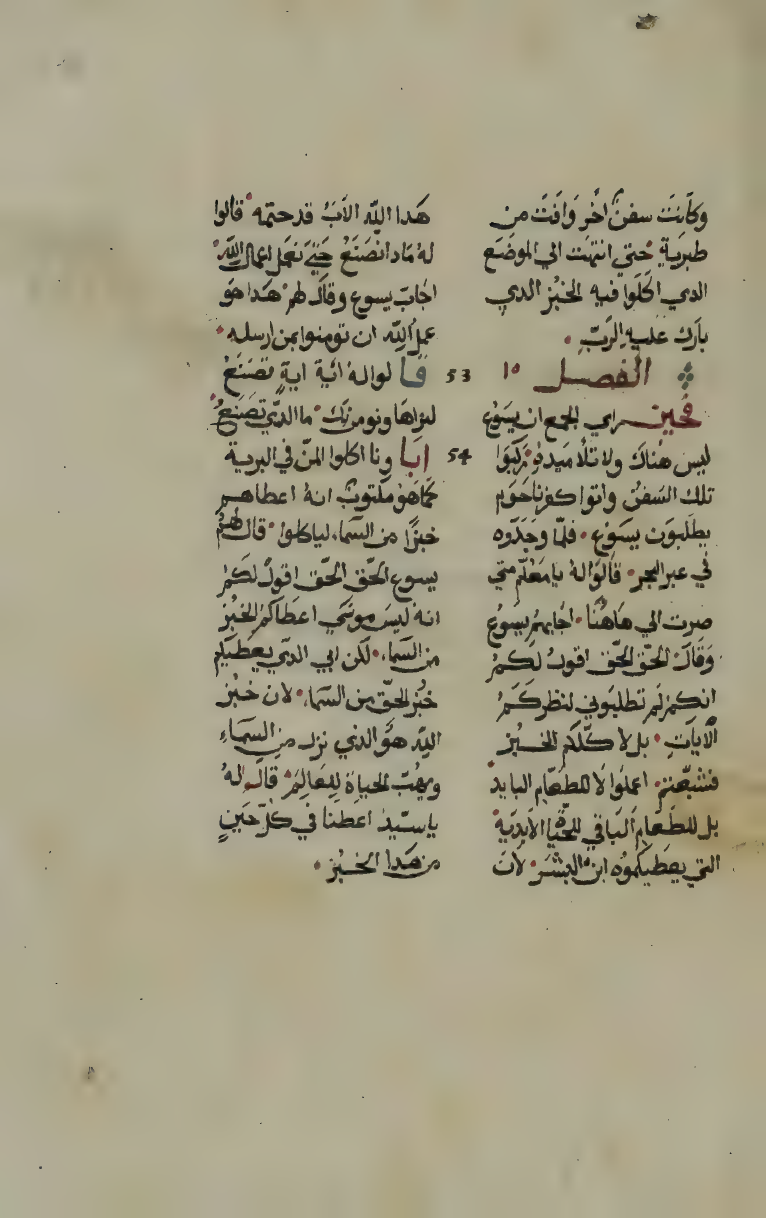 وكَانت سفنٌ اخَر وَافَت من
طبرَية حَتي انتهَت الي الموضَع
الدي اكَلَوا فيه الخبْز الدي
بارَك عليه الرَبّ .
الفصل ١٥
فحين راي الجمع ان يسَوْع
ليس هنَاك ولا تلَاميده رَكبَوا
تلك السَفنْ واتوا كفرنَاحَوم
يطلبوَن يسَوْع . فلمّا وجَدَوه
في عبر البحر . قالَوا لهُ يا معَلّم متي
صرت الي هَاهُنا . اجَابهمْ يسَوُع
وَقَالَ الحَقّ الحَقّ اقولُ لكمْ
انكمْ لَم تطلبَوني لنظركَمْ
الآيَاتِ . بل لاكلكَم الخبْز
فشبَعتمْ . اعملَوا لَا للطعَام البايد
بل للطعَام البَاقي للحيَاة الابدَية
التي يعَطيكموْه ابن البشَر . لَانَ
هَدا اللّه الابُ قد ختمه . قالوا
لهُ مَادا نصَنَعْ حَتيَ نعَمل اعمال اللّه .
اجَابَ يسوع وقَالَ لهمْ هَدا هَوَ
عملُ اللّه ان تومنوا بمن ارسله .
53 قالوا له ائية ايةٍ تصْنَعْ
لنراهَا ونومن بَك . ما الدّي تصَنعُ .
54 ابَاونا اكلوا المنّ في البرية
كمَا هَوَ مكتوبٌ انهُ اعطاهم
خبزًا من السَّمَاء لياكلوا . قال لهُمْ
يسوع الحَق الحَق اقولُ لكمْ
انهُ ليسَ موسَي اعطَاكمْ الخبْز
من السَّماء . لَكن ابي الدّي يعَطيكم
خبْز الحقّ من السَمَاء . لان خبْز
اللّه هَوَ الذي نزل من السَماءِ
ويهَبُ الحياة للعَالمْ . قالَوا لهُ
ياسَيّد اعَطنا في كلّ حَينٍ
من هَدا الخبْز .